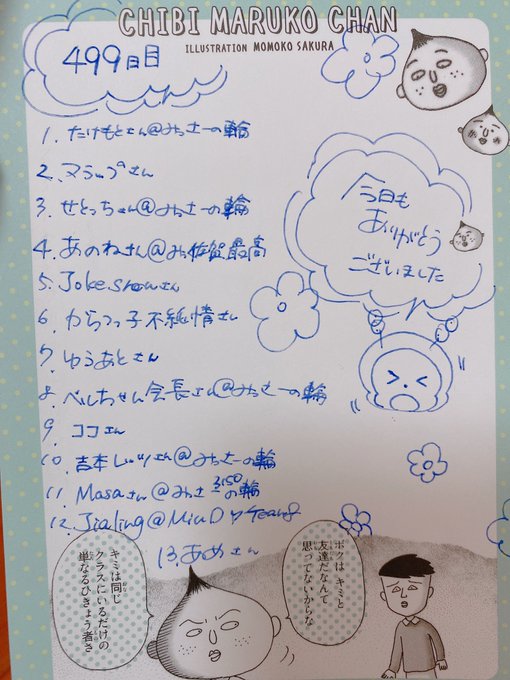 CHIBI MARUKO CHAN
ILLUSTRATION MOMOKO SAKURA
499日目
1. たけもとさん@みっさーの輪
2. マラップさん
3. せとっちゃん@みっさーの輪
4. あのねさん@みっ佐賀最高
5. Joke snowさん
6. からつっ子不純情さん
7. ゆうあとさん
8. べるちゃん会長さん@みっさーの輪
9. ココさん
10. 吉本しゅッさん@みっさーの輪
11. Masaさん@みっさー3150の輪
12. Jialing@MiuD
13. あめさん
今日も
ありがとう
ございました
ボクは キミと
友達だなんて
思ってないからな
キミは同じ
クラスにいるだけの
単なるひきょう者さ